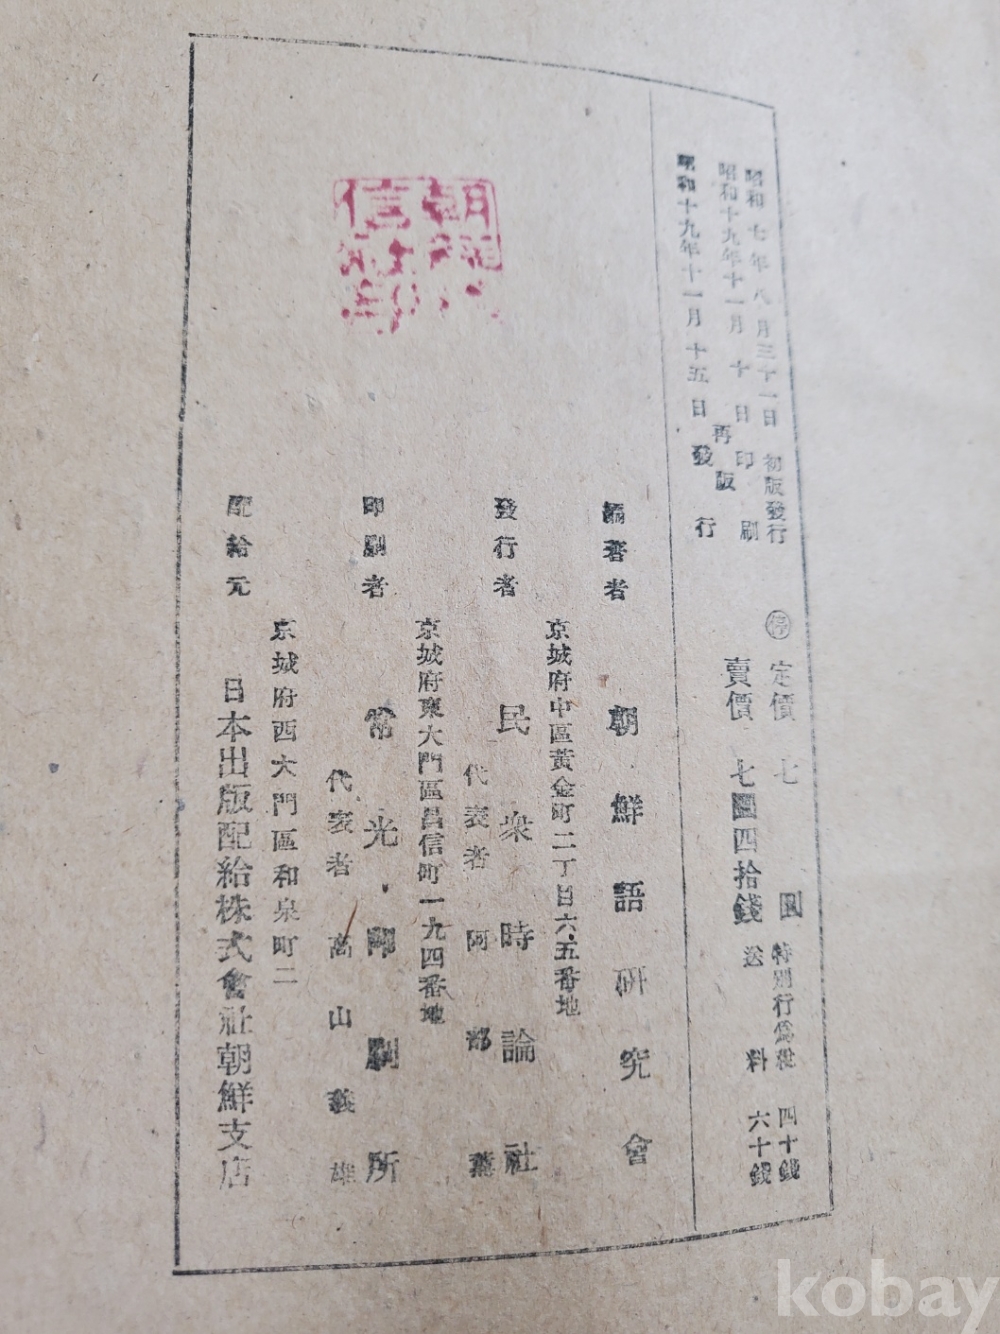 昭和七年八月三十一日 初版發行
昭和十九年十一月 十日印刷
再版
昭和十九年十一月十五日發行
停 定價 七圓 特別行爲稅 四十錢
賣價 七圓四拾錢 送料 六十錢
編著者 朝鮮語硏究會
京城府中區黃金町二丁目六五番地
發行者 民衆時論社
代表者 阿部薰
京城府東大門區昌信町一九四番地
印刷者 常光印刷所
代表者 高山義雄
京城府西大門區和泉町二
配給元 日本出版配給株式會社朝鮮支店
kobay